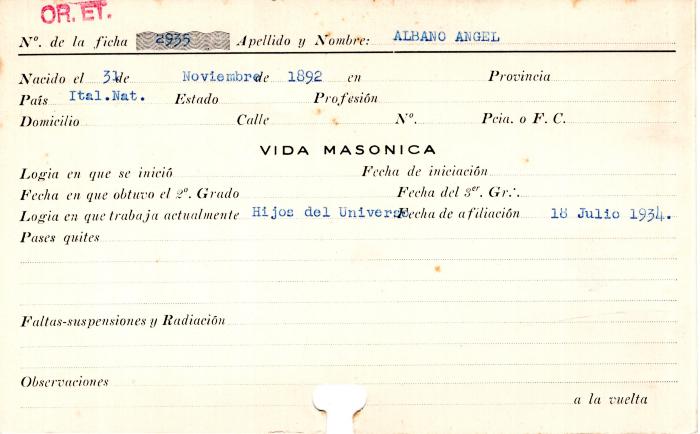 OR. ET.
Nº. de la ficha 2935 Apellido y Nombre: ALBANO ANGEL
Nacido el 31 de Noviembre de 1892 en Provincia
País Ital.Nat. Estado Profesión
Domicilio Calle Nº. Pcia. o F. C.
VIDA MASONICA
Logia en que se inició Fecha de iniciación
Fecha en que obtuvo el 2º. Grado Fecha del 3er. Gr∴
Logia en que trabaja actualmente Hijos del Universo Fecha de afiliación 18 Julio 1934.
Pases quites
Faltas-suspensiones y Radiación
Observaciones
a la vuelta